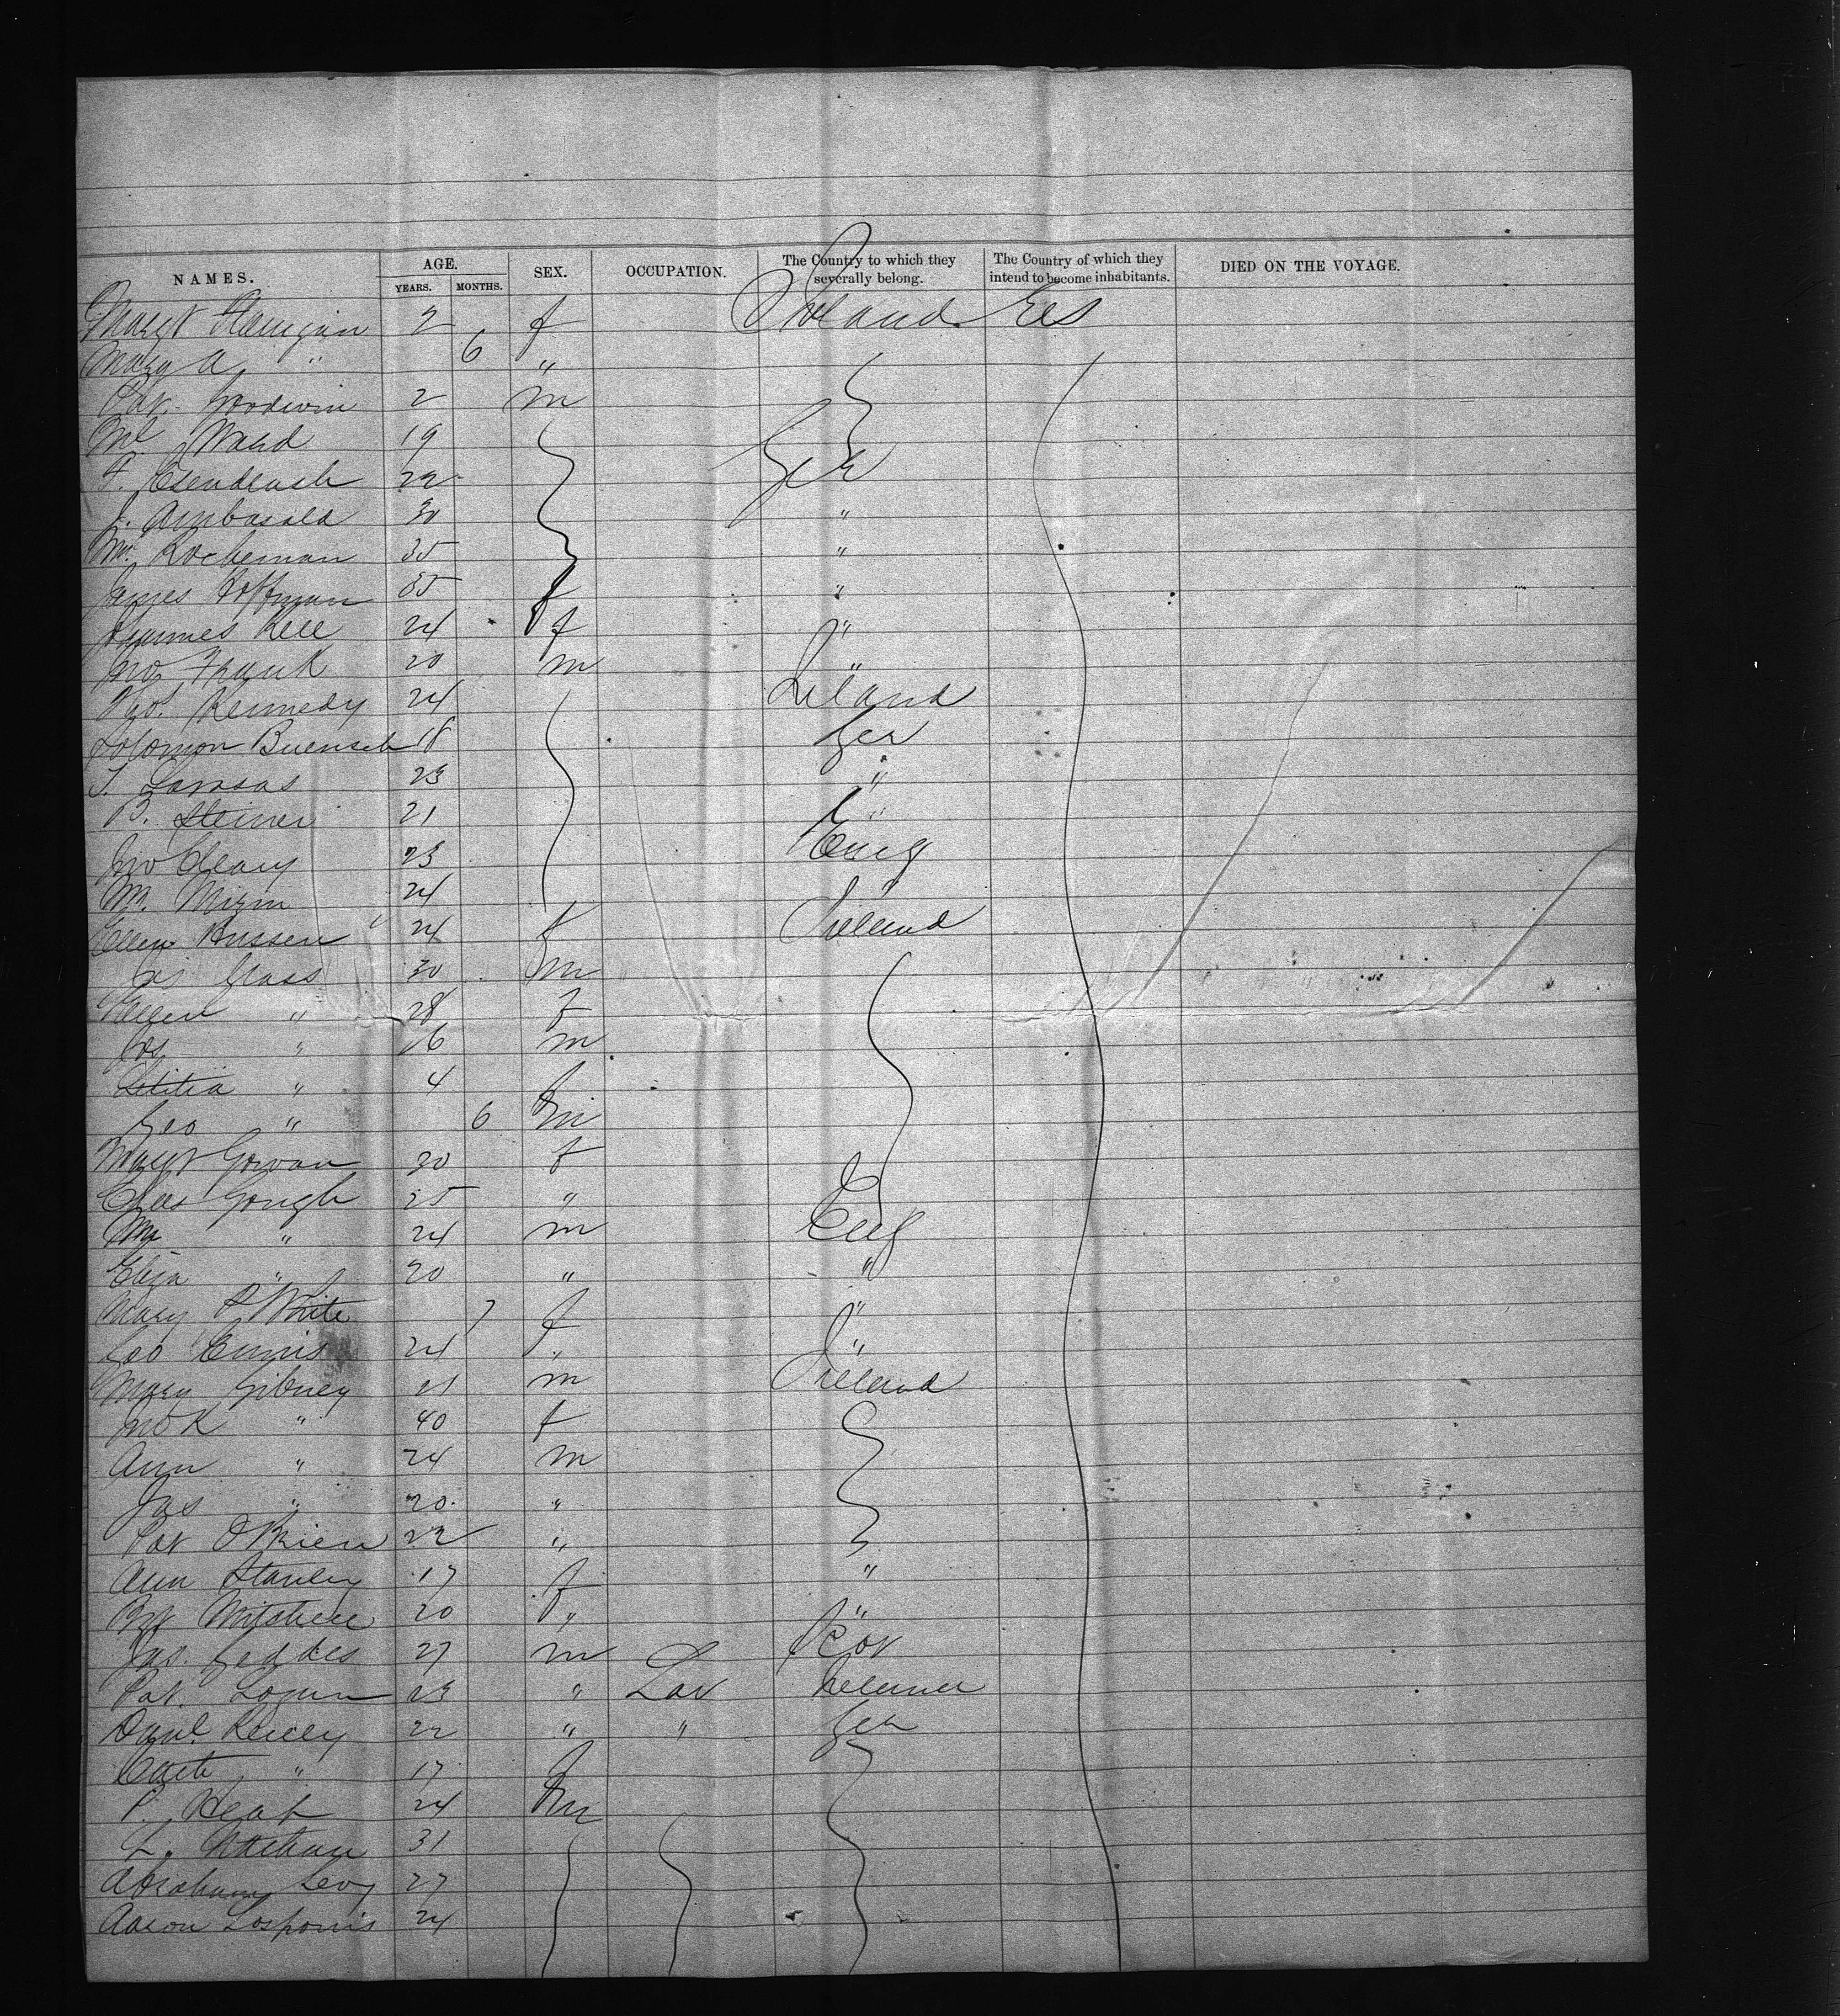 NAMES. AGE. YEARS. MONTHS. SEX. OCCUPATION. The Country to which they severally belong. The Country of which they intend to become inhabitants. DIED ON THE VOYAGE.
Margt Flanigan 2 f Ireland
Mary A " 6 "
Pat. Goodwin 2 m
Ml Ward 19
F. 22 Ger
30 "
Wm. Rockeman 35 "
James Hoffman 35 f "
Kell 24 f "
Jno Frank 20 m "
Kennedy 24 Ireland
Solomon Buensch 18 Ger
S. Samsas 23 "
B. Steiner 21 "
Jno Cleary 23 Eng
24 "
Ellen Hussen 24 f Ireland
Jas Glass 30 m
Ellen " 28 f
Jos " 16 m
Letitia " 4 f
Geo " 6 m
Margt Gowan 30 f
Chas Gough 25 "
Wm " 24 m Eng
Eliza " 20 " "
Mary White 7 f "
Geo Ennis 24 " "
Mary Gibney 21 m Ireland
" 40 f
Ann " 24 m
Jas " 20 "
Pat O'Brien 22 "
Ann Stanley 17 f "
Bgt Mitchell 20 " "
Jas. Geddes 27 m Scot
Pat. Logan 23 " Lab Ireland
Danl. Reilly 22 " " Ger
Cath " 17 f
P. Heap 24 m
L. Nathan 31
Abraham Levy 27
Aaron 24